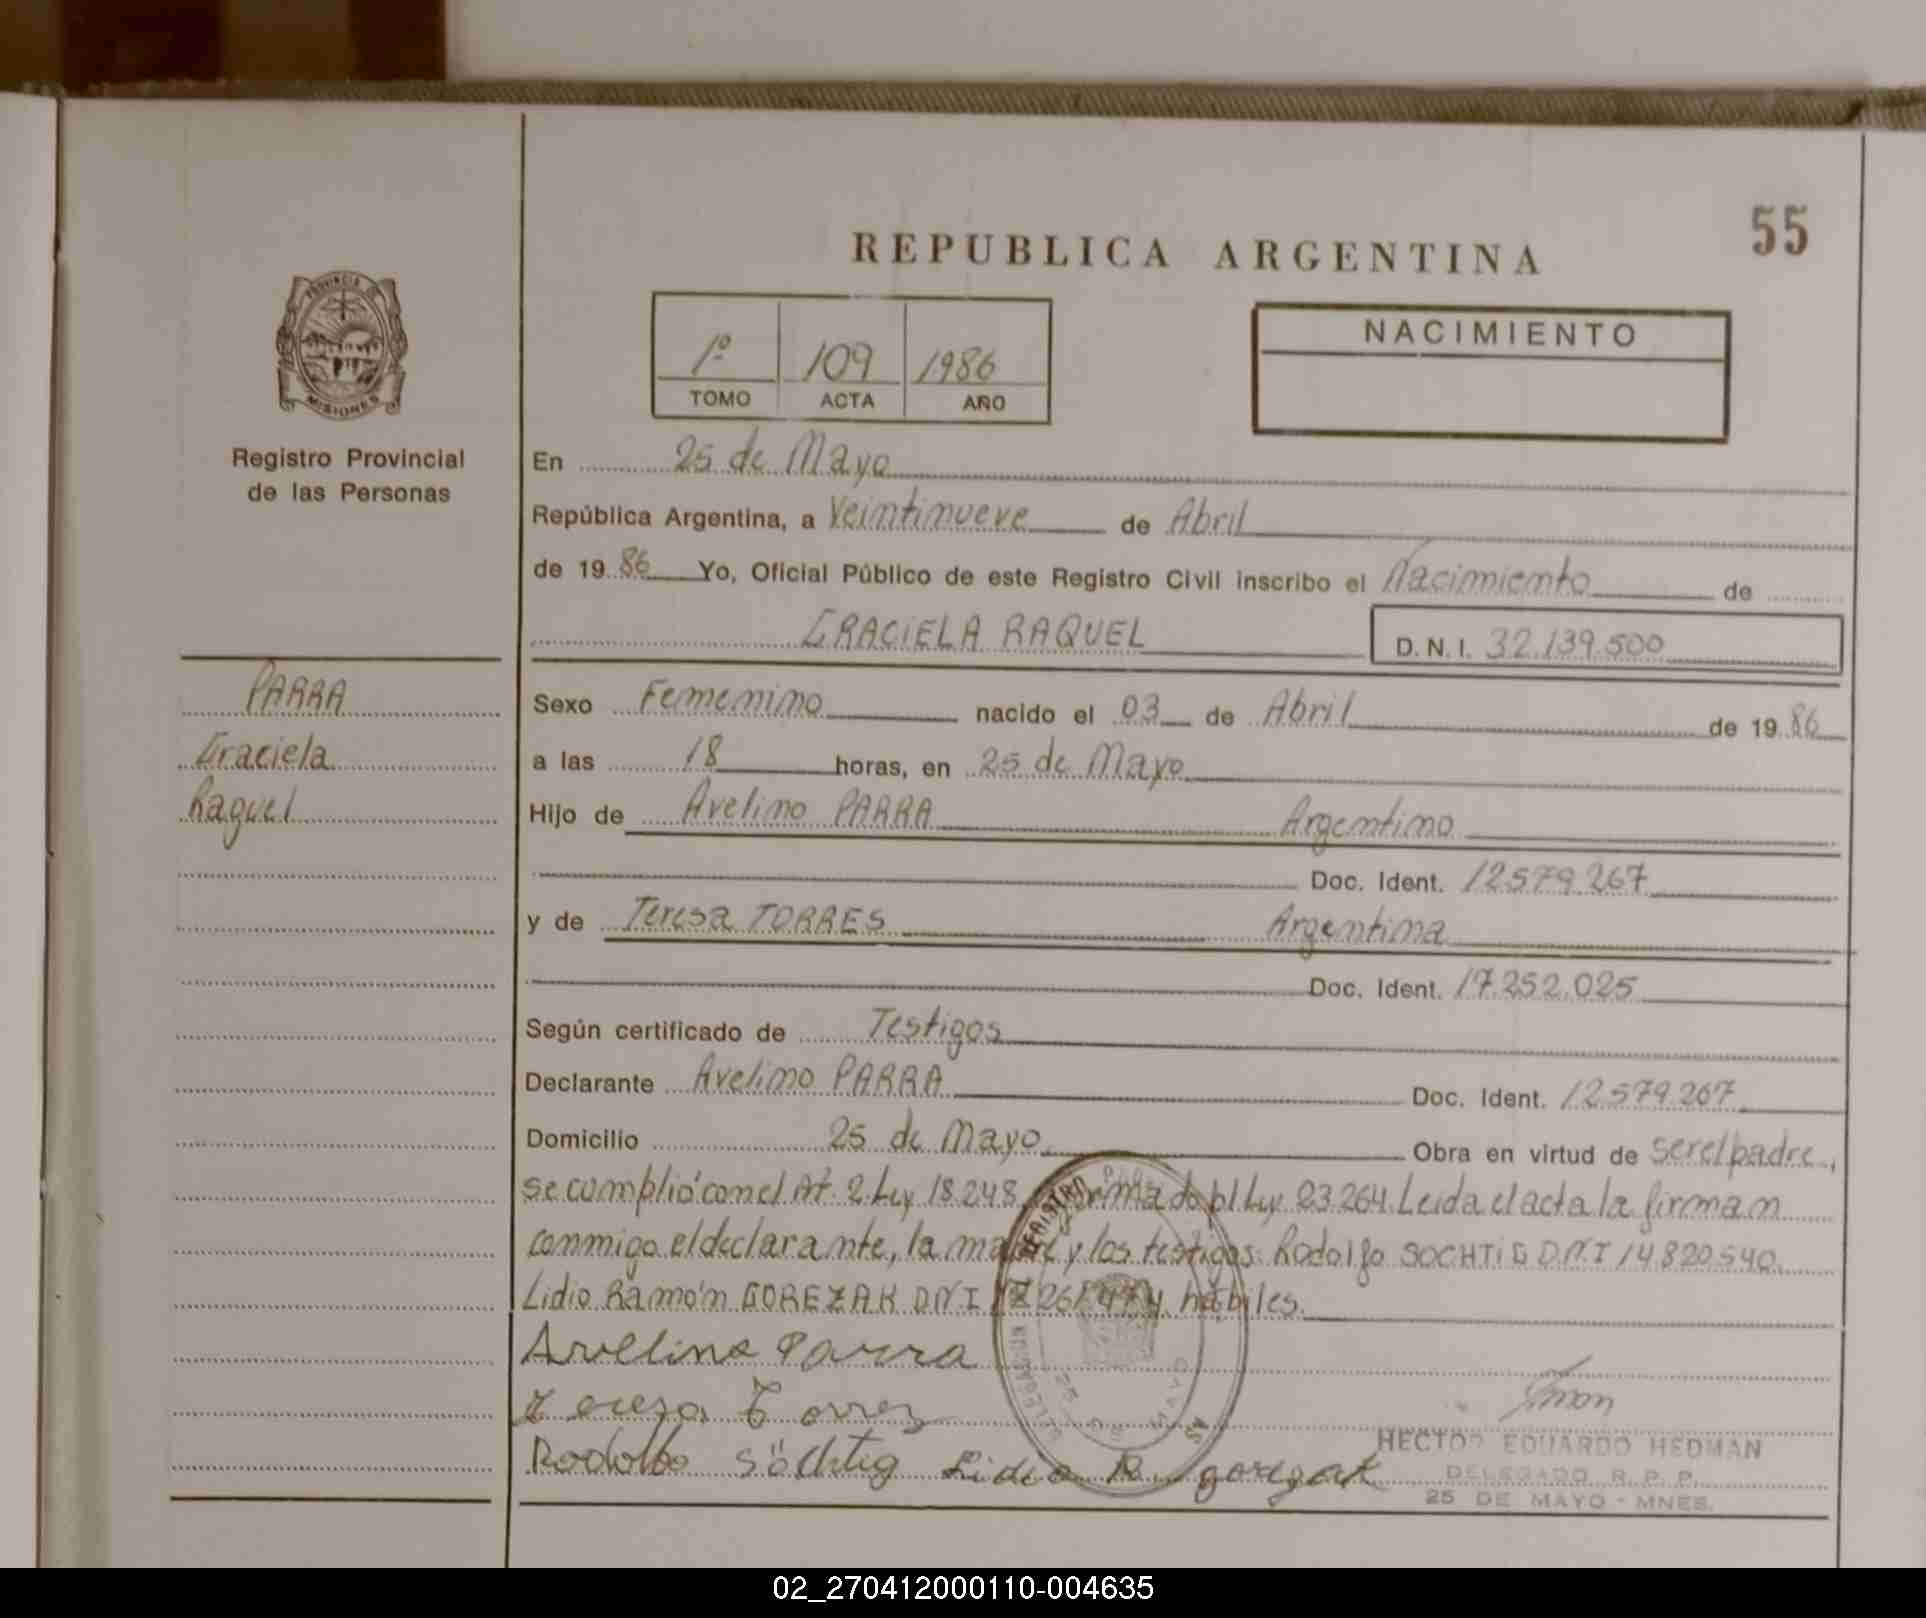 55
REPUBLICA ARGENTINA
PROVINCIA DE
MISIONES
Registro Provincial
de las Personas
1º 109 1986
TOMO ACTA AÑO
NACIMIENTO
En 25 de Mayo
República Argentina, a Veintinueve de Abril
de 1986 Yo, Oficial Público de este Registro Civil inscribo el Nacimiento de
GRACIELA RAQUEL D.N.I. 32.139.500
PARRA
Graciela
Raquel
Sexo Femenino nacido el 03 de Abril de 1986
a las 18 horas, en 25 de Mayo
Hijo de Avelino PARRA Argentino
Doc. Ident. 12579.267
y de Teresa TORRES Argentina
Doc. Ident. 17.252.025
Según certificado de Testigos
Declarante Avelino PARRA Doc. Ident. 12.579.267
Domicilio 25 de Mayo Obra en virtud de ser el padre,
se cumplió con el At. 2. Ley 18.248, p/ Ley 23.264. Leida el acta la firman
conmigo el declarante, la madre y los testigos: Rodolfo SOCHTIG D.N.I 14820540
Lidio Ramón GOREZAK D.N.I hábiles.
Avelino Parra
Tereza Torres
Rodolfo Söchtig Lidio R. gorezak
HECTOR EDUARDO HEDMAN
DELEGADO R. P. P.
25 DE MAYO - MNES.
02_270412000110-004635